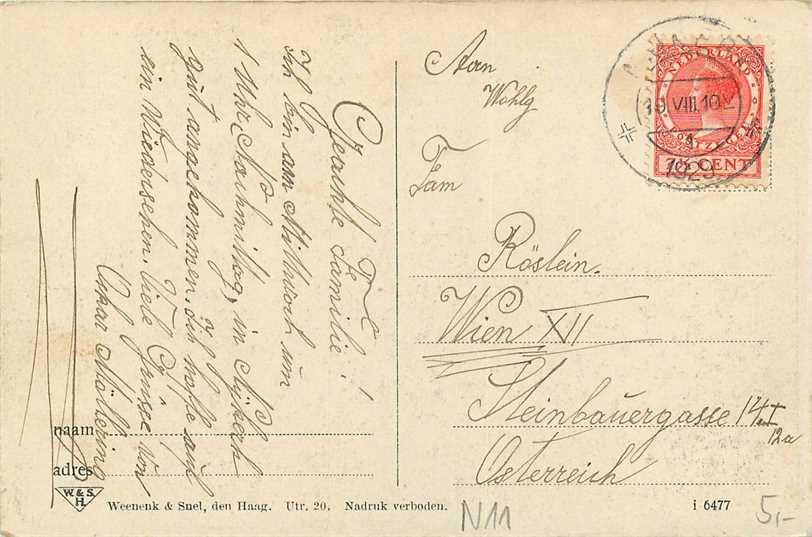 Geachte Familie!
Ich bin am Mittwoch um
1 Uhr Nachmittag, in Nijkerk
gut angekommen. Ich hoffe auf
ein Wiedersehen. Viele Grüsse von
Oskar Möllering
naam
adres
W. & S.
H.
Weenenk & Snel, den Haag. Utr. 20. Nadruk verboden.
NEDERLAND
POSTZEGEL
7½ CENT
19 VIII 10 V
1929
Wohlg
Fam
Röslein.
Wien XII
Steinbauergasse 14/I
12a
Österreich
i 6477
N11
5,-